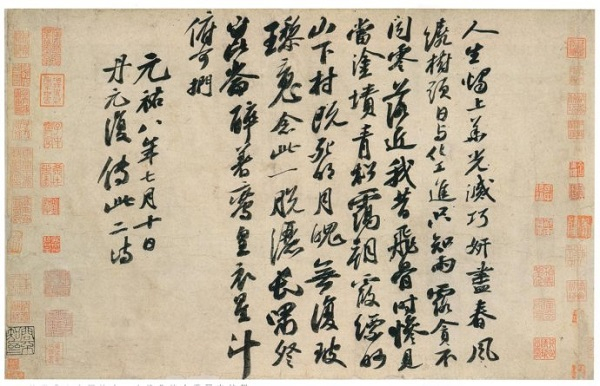 人生燭上華光滅巧妍盡春風
繞樹頭日與化工進只知雨露貪不
聞零落近我昔飛骨時慘見
當塗墳青松靄朝霞縹緲
山下村既死明月魄無復玻
瓈魂念此一脫灑長嘯登
崑崙醉著鸞皇衣星斗
俯可捫
元祐八年七月十日
丹元復傳此二詩